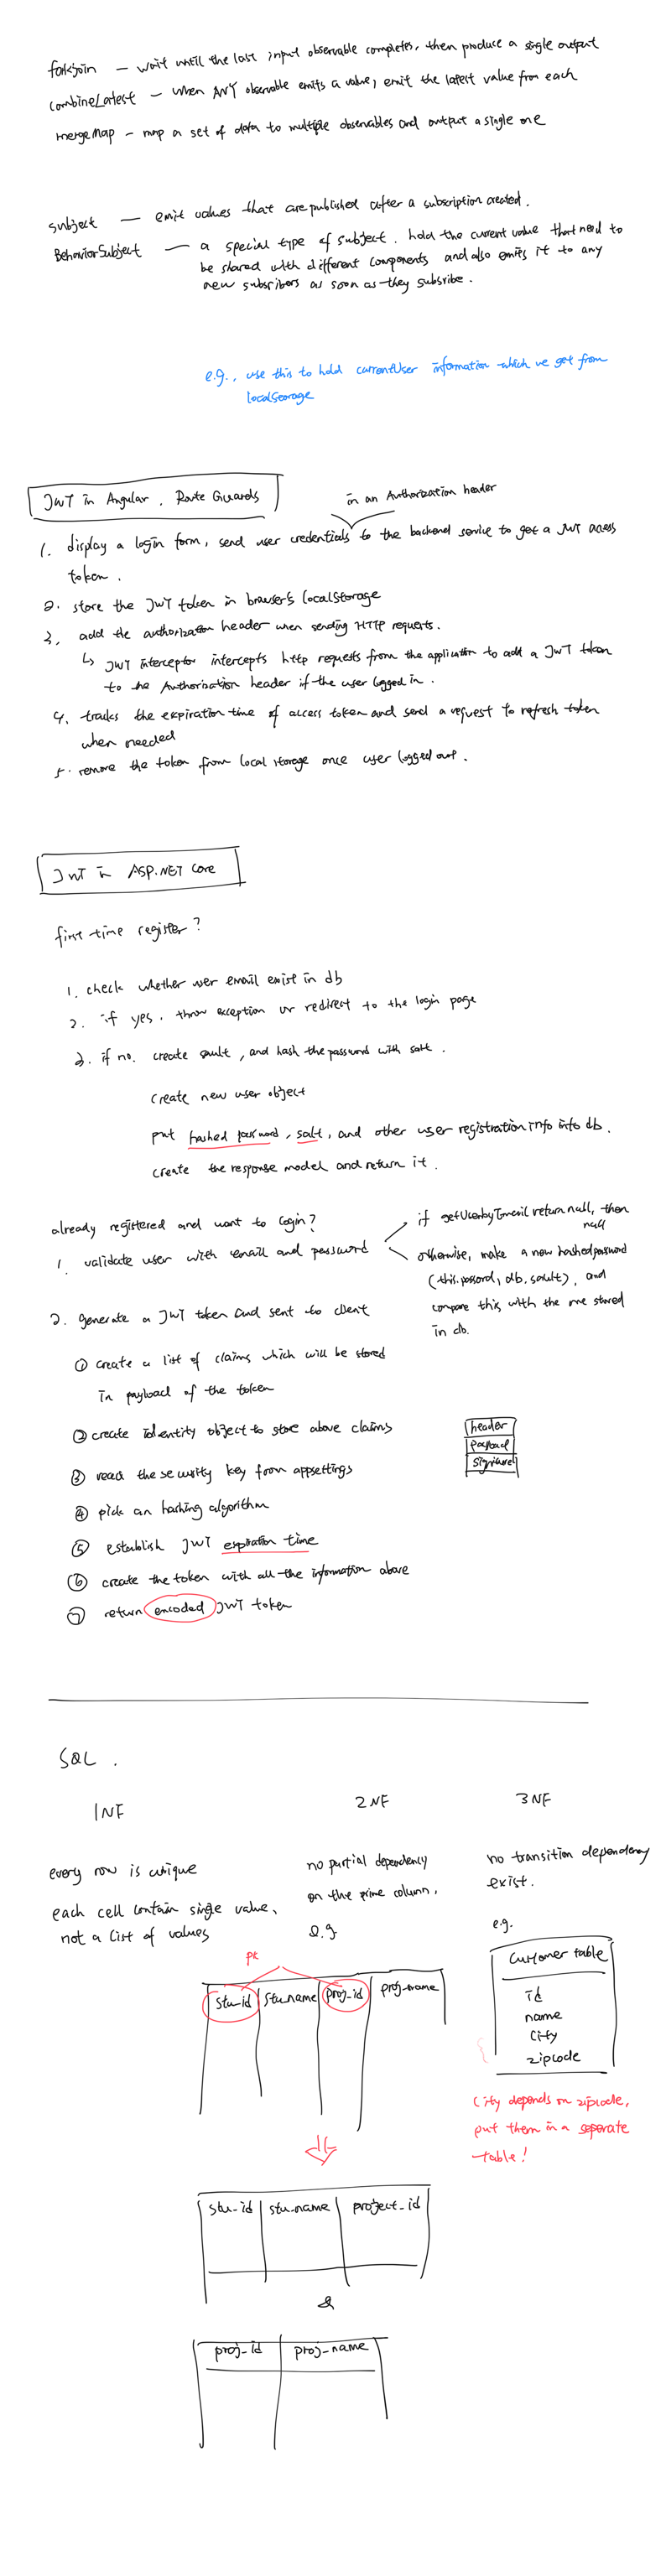 forkjoin — wait until the last input observable completes, then produce a single output
combineLatest — when ANY observable emits a value, emit the latest value from each
mergeMap — map a set of data to multiple observables and output a single one
subject — emit values that are published after a subscription created.
BehaviorSubject — a special type of subject. hold the current value that need to
be shared with different components and also emits it to any
new subscribers as soon as they subsribe.
e.g., use this to hold currentUser information which we get from
localStorage
JWT in Angular. Route Guards
in an Authorization header
1. display a login form, send user credentials to the backend service to get a JWT access
token.
2. store the JWT token in browser's localstorage
3. add the authorization header when sending HTTP requests.
↳ JWT interceptor intercepts http requests from the application to add a JWT token
to the Authorization header if the user logged in.
4. tracks the expiration time of access token and send a request to refresh token
when needed
5. remove the token from local storage once user logged out.
JWT in ASP.NET Core
first time register?
1. check whether user email exist in db
2. if yes, throw exception or redirect to the login page
3. if no. create sault, and hash the password with salt.
create new user object
put hashed password, salt, and other user registration info into db.
create the response model and return it.
already registered and want to login?
1. validate user with email and password
if getUserbyEmail return null, then
null
otherwise, make a new hashed password
(this.passord, db.sault), and
compare this with the one stored
in db.
2. generate a JWT token and sent to client
① create a list of claims which will be stored
in payload of the token
② create identity object to store above claims
③ read the security key from appsettings
④ pick an hashing algorithm
⑤ establish JWT expiration time
⑥ create the token with all the information above
⑦ return encoded JWT token
header
payload
signature
SQL.
1NF
2NF
3NF
every row is unique
each cell contain single value,
not a list of values
no partial dependency
on the prime column,
e.g
no transition dependency
exist.
e.g.
pk
stu_id stu_name proj_id proj_name
customer table
id
name
city
zipcode
city depends on zipcode,
put them in a seperate
table!
stu_id stu_name project_id
&
proj_id proj_name